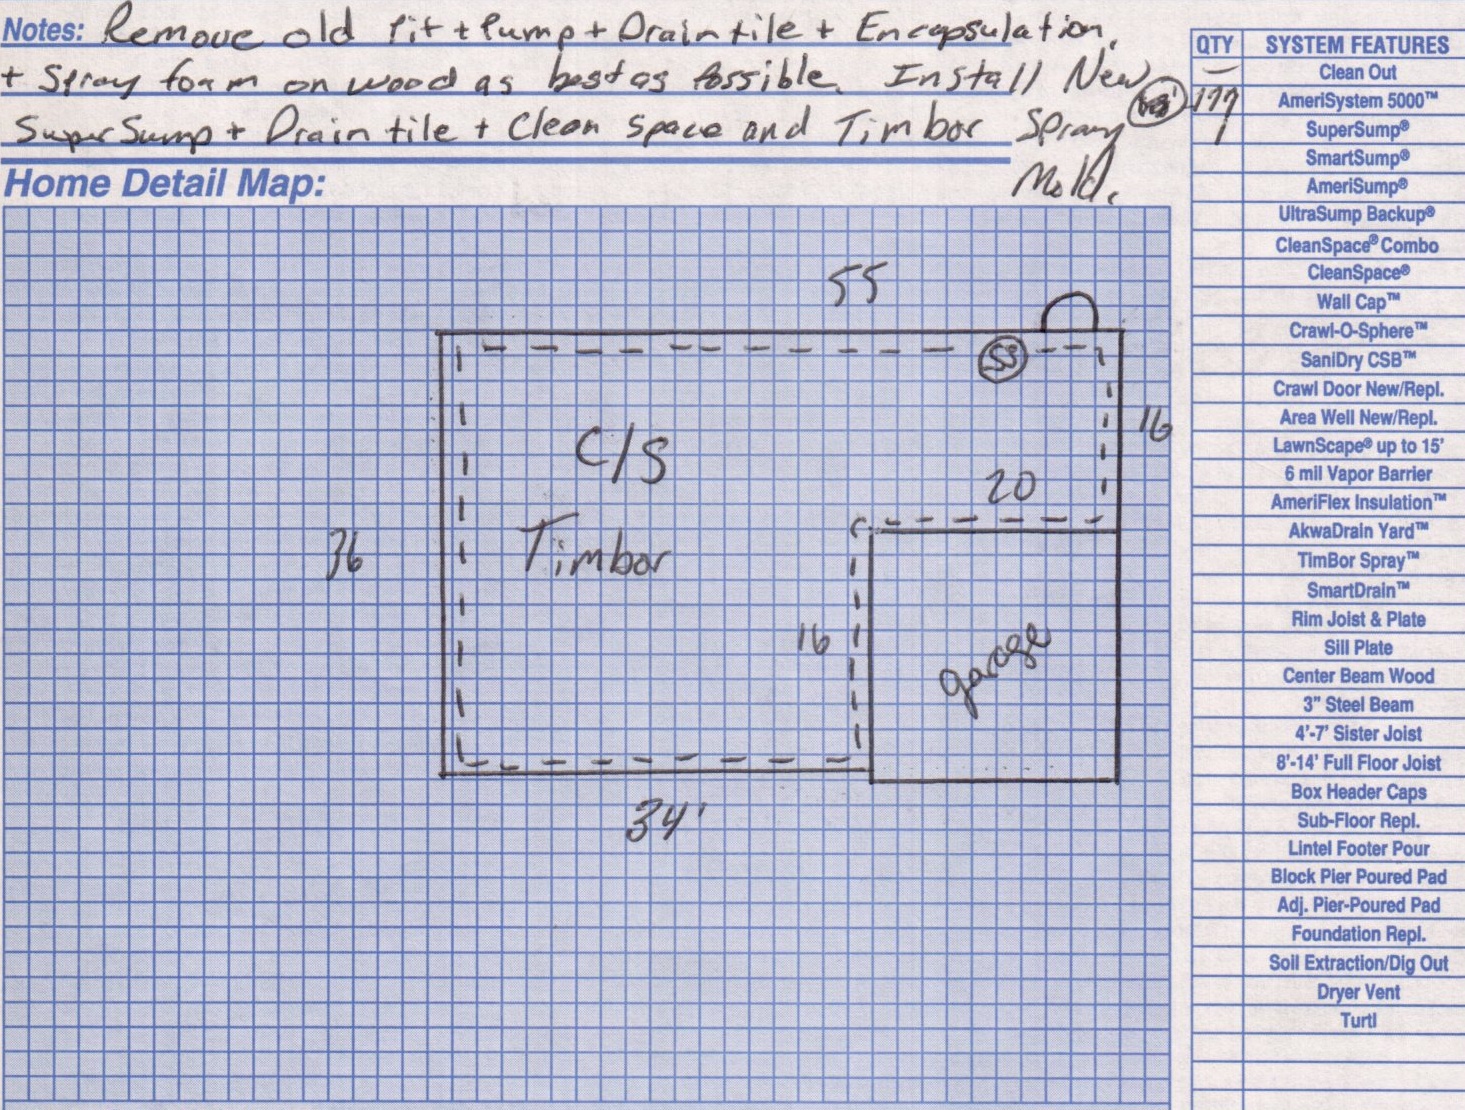 Notes: Remove old Pit + Pump + Drain tile + Encapsulation,
+ Spray foam on wood as best as Possible. Install New
SuperSump + Drain tile + Clean Space and Timbor Spray
Mold.
Home Detail Map:
55
SS
16
C/S
20
Timbor
36
16
garage
34'
QTY SYSTEM FEATURES
— Clean Out
177 AmeriSystem 5000™
1 SuperSump®
SmartSump®
AmeriSump®
UltraSump Backup®
CleanSpace® Combo
CleanSpace®
Wall Cap™
Crawl-O-Sphere™
SaniDry CSB™
Crawl Door New/Repl.
Area Well New/Repl.
LawnScape® up to 15'
6 mil Vapor Barrier
AmeriFlex Insulation™
AkwaDrain Yard™
TimBor Spray™
SmartDrain™
Rim Joist & Plate
Sill Plate
Center Beam Wood
3" Steel Beam
4'-7' Sister Joist
8'-14' Full Floor Joist
Box Header Caps
Sub-Floor Repl.
Lintel Footer Pour
Block Pier Poured Pad
Adj. Pier-Poured Pad
Foundation Repl.
Soil Extraction/Dig Out
Dryer Vent
Turtl